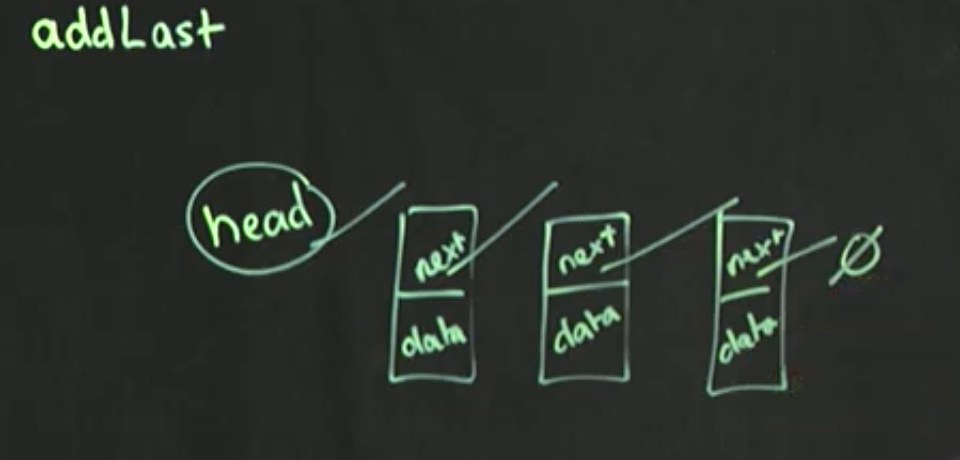 addLast
head
next
data
next
data
next
data
∅